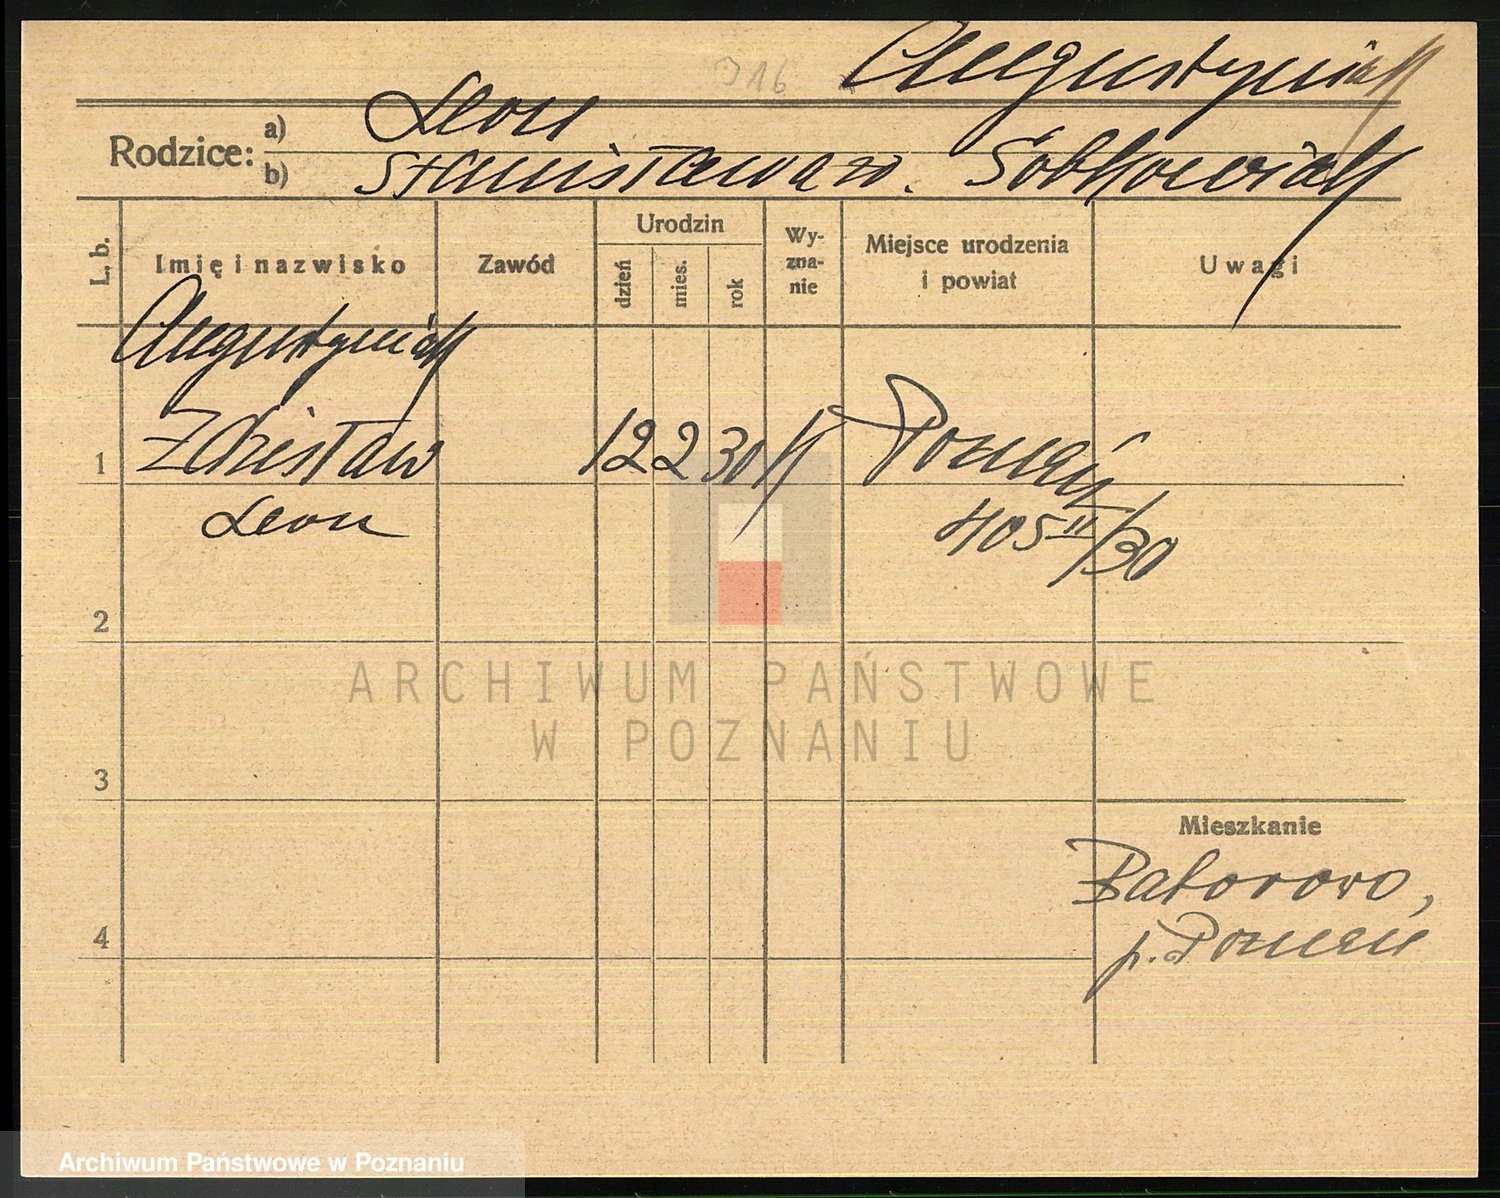 316
Augustyniak
Rodzice:
a) Leon
b) Stanisława zd. Sobkowiak
L. b.
Imię i nazwisko
Zawód
Urodzin
dzień
mies.
rok
Wy-
zna-
nie
Miejsce urodzenia
i powiat
Uwagi
Augustyniak
1 Zdzisław 12 2 30 k Poznań
Leon 405 II/30
2
3
4
ARCHIWUM PAŃSTWOWE
W POZNANIU
Mieszkanie
Batorowo,
p. Poznań
Archiwum Państwowe w Poznaniu